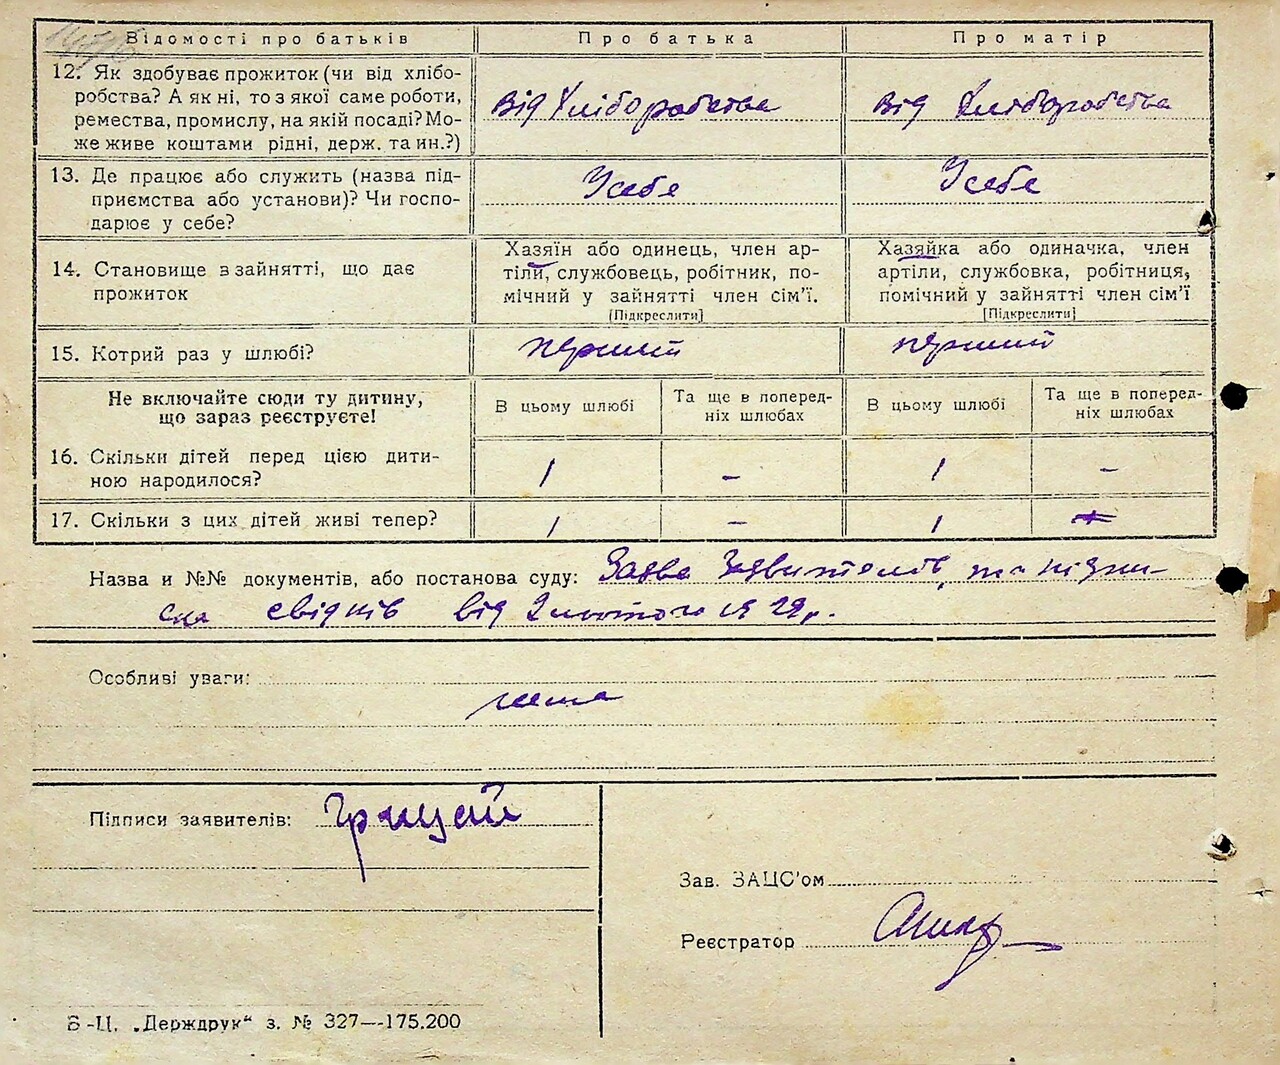 Відомості про батьків
Про батька
Про матір
12. Як здобуває прожиток (чи від хлібо-
робства? А як ні, то з якої саме роботи,
ремества, промислу, на якій посаді? Мо-
же живе коштами рідні, держ. та ин.?)
від хліборобства
від хліборобства
13. Де працює або служить (назва під-
приємства або установи)? Чи госпо-
дарює у себе?
У себе
У себе
14. Становище в зайнятті, що дає
прожиток
Хазяїн або одинець, член ар-
тіли, службовець, робітник, по-
мічний у зайнятті член сім'ї.
[Підкреслити]
Хазяйка або одиначка, член
артіли, службовка, робітниця,
помічний у зайнятті член сім'ї
[Підкреслити]
15. Котрий раз у шлюбі?
перший
перший
Не включайте сюди ту дитину,
що зараз реєструєте!
В цьому шлюбі
Та ще в поперед-
ніх шлюбах
В цьому шлюбі
Та ще в поперед-
ніх шлюбах
16. Скільки дітей перед цією дити-
ною народилося?
1
-
1
-
17. Скільки з цих дітей живі тепер?
1
-
1
Назва и №№ документів, або постанова суду: Заява Заявителів, та підпи-
ска свідків від 2 лютого 1929 р.
Особливі уваги:
нема
Підписи заявителів: Грицай
Зав. ЗАЦС'ом
Реєстратор
Б-Ц. „Держдрук“ з. № 327—175.200